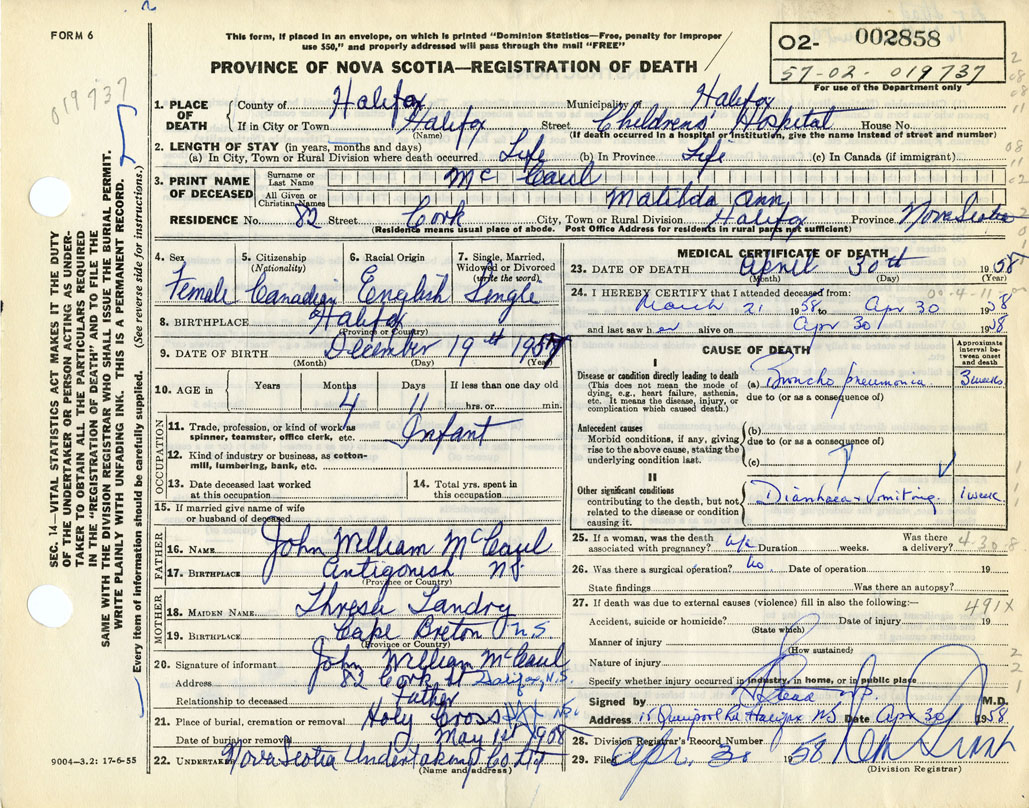 FORM 6
This form, if placed in an envelope, on which is printed "Dominion Statistics—Free, penalty for improper
use $50," and properly addressed will pass through the mail "FREE"
PROVINCE OF NOVA SCOTIA—REGISTRATION OF DEATH
02- 002858
57-02-019737
For use of the Department only
019737
1. PLACE OF DEATH County of Halifax Municipality of Halifax
If in City or Town Halifax Street Childrens' Hospital House No.
(Name) (If death occurred in a hospital or institution, give name instead of street and number)
2. LENGTH OF STAY (in years, months and days)
(a) In City, Town or Rural Division where death occurred Life (b) In Province Life (c) In Canada (if immigrant)
3. PRINT NAME OF DECEASED Surname or Last Name Mc Caul
All Given or Christian Names Matilda Ann
RESIDENCE No. 82 Street Cork City, Town or Rural Division Halifax Province Nova Scotia
(Residence means usual place of abode. Post Office Address for residents in rural parts not sufficient)
4. Sex Female
5. Citizenship (Nationality) Canadian
6. Racial Origin English
7. Single, Married, Widowed or Divorced (write the word) Single
8. BIRTHPLACE Halifax
(Province or Country)
9. DATE OF BIRTH December 19th 1957
(Month) (Day) (Year)
10. AGE in Years Months 4 Days 11 If less than one day old hrs. or min.
OCCUPATION
11. Trade, profession, or kind of work as spinner, teamster, office clerk, etc. Infant
12. Kind of industry or business, as cotton-mill, lumbering, bank, etc.
13. Date deceased last worked at this occupation
14. Total yrs. spent in this occupation
15. If married give name of wife or husband of deceased
FATHER
16. NAME John William McCaul
17. BIRTHPLACE Antigonish NS
(Province or Country)
MOTHER
18. MAIDEN NAME Thresa Landry
19. BIRTHPLACE Cape Breton N.S.
(Province or Country)
20. Signature of informant John William McCaul
Address 82 Cork St Halifax, N.S.
Relationship to deceased Father
21. Place of burial, cremation or removal Holy Cross
Date of burial or removal May 1st
22. UNDERTAKER Nova Scotia Undertaking Co. Ltd
(Name and address)
9004—3.2: 17-6-55
MEDICAL CERTIFICATE OF DEATH
23. DATE OF DEATH April 30th 1958
(Month) (Day) (Year)
24. I HEREBY CERTIFY that I attended deceased from:
March 21 1958 to Apr 30 1958
and last saw her alive on Apr 30 1958
CAUSE OF DEATH
Approximate interval between onset and death
I
Disease or condition directly leading to death (a) Broncho pneumonia 3 weeks
(This does not mean the mode of dying, e.g., heart failure, asthenia, etc. It means the disease, injury, or complication which caused death.)
due to (or as a consequence of)
Antecedent causes (b)
Morbid conditions, if any, giving rise to the above cause, stating the underlying condition last.
due to (or as a consequence of)
(c)
II
Other significant conditions Diarrhoea & Vomiting 1 week
contributing to the death, but not related to the disease or condition causing it.
25. If a woman, was the death associated with pregnancy? Duration weeks. Was there a delivery? 4-30-8
26. Was there a surgical operation? no Date of operation 19
State findings Was there an autopsy?
27. If death was due to external causes (violence) fill in also the following:— 491X
Accident, suicide or homicide? Date of injury 19
(State which)
Manner of injury
(How sustained)
Nature of injury
Specify whether injury occurred in industry, in home, or in public place
Signed by M.D.
Address Halifax NS Date Apr 30 1958
28. Division Registrar's Record Number
29. Filed Apr. 30 1958
(Division Registrar)
SEC. 14—VITAL STATISTICS ACT MAKES IT THE DUTY
OF THE UNDERTAKER OR PERSON ACTING AS UNDER-
TAKER TO OBTAIN ALL THE PARTICULARS REQUIRED
IN THE "REGISTRATION OF DEATH" AND TO FILE THE
SAME WITH THE DIVISION REGISTRAR WHO SHALL ISSUE THE BURIAL PERMIT.
WRITE PLAINLY WITH UNFADING INK. THIS IS A PERMANENT RECORD.
Every item of information should be carefully supplied. (See reverse side for instructions.)